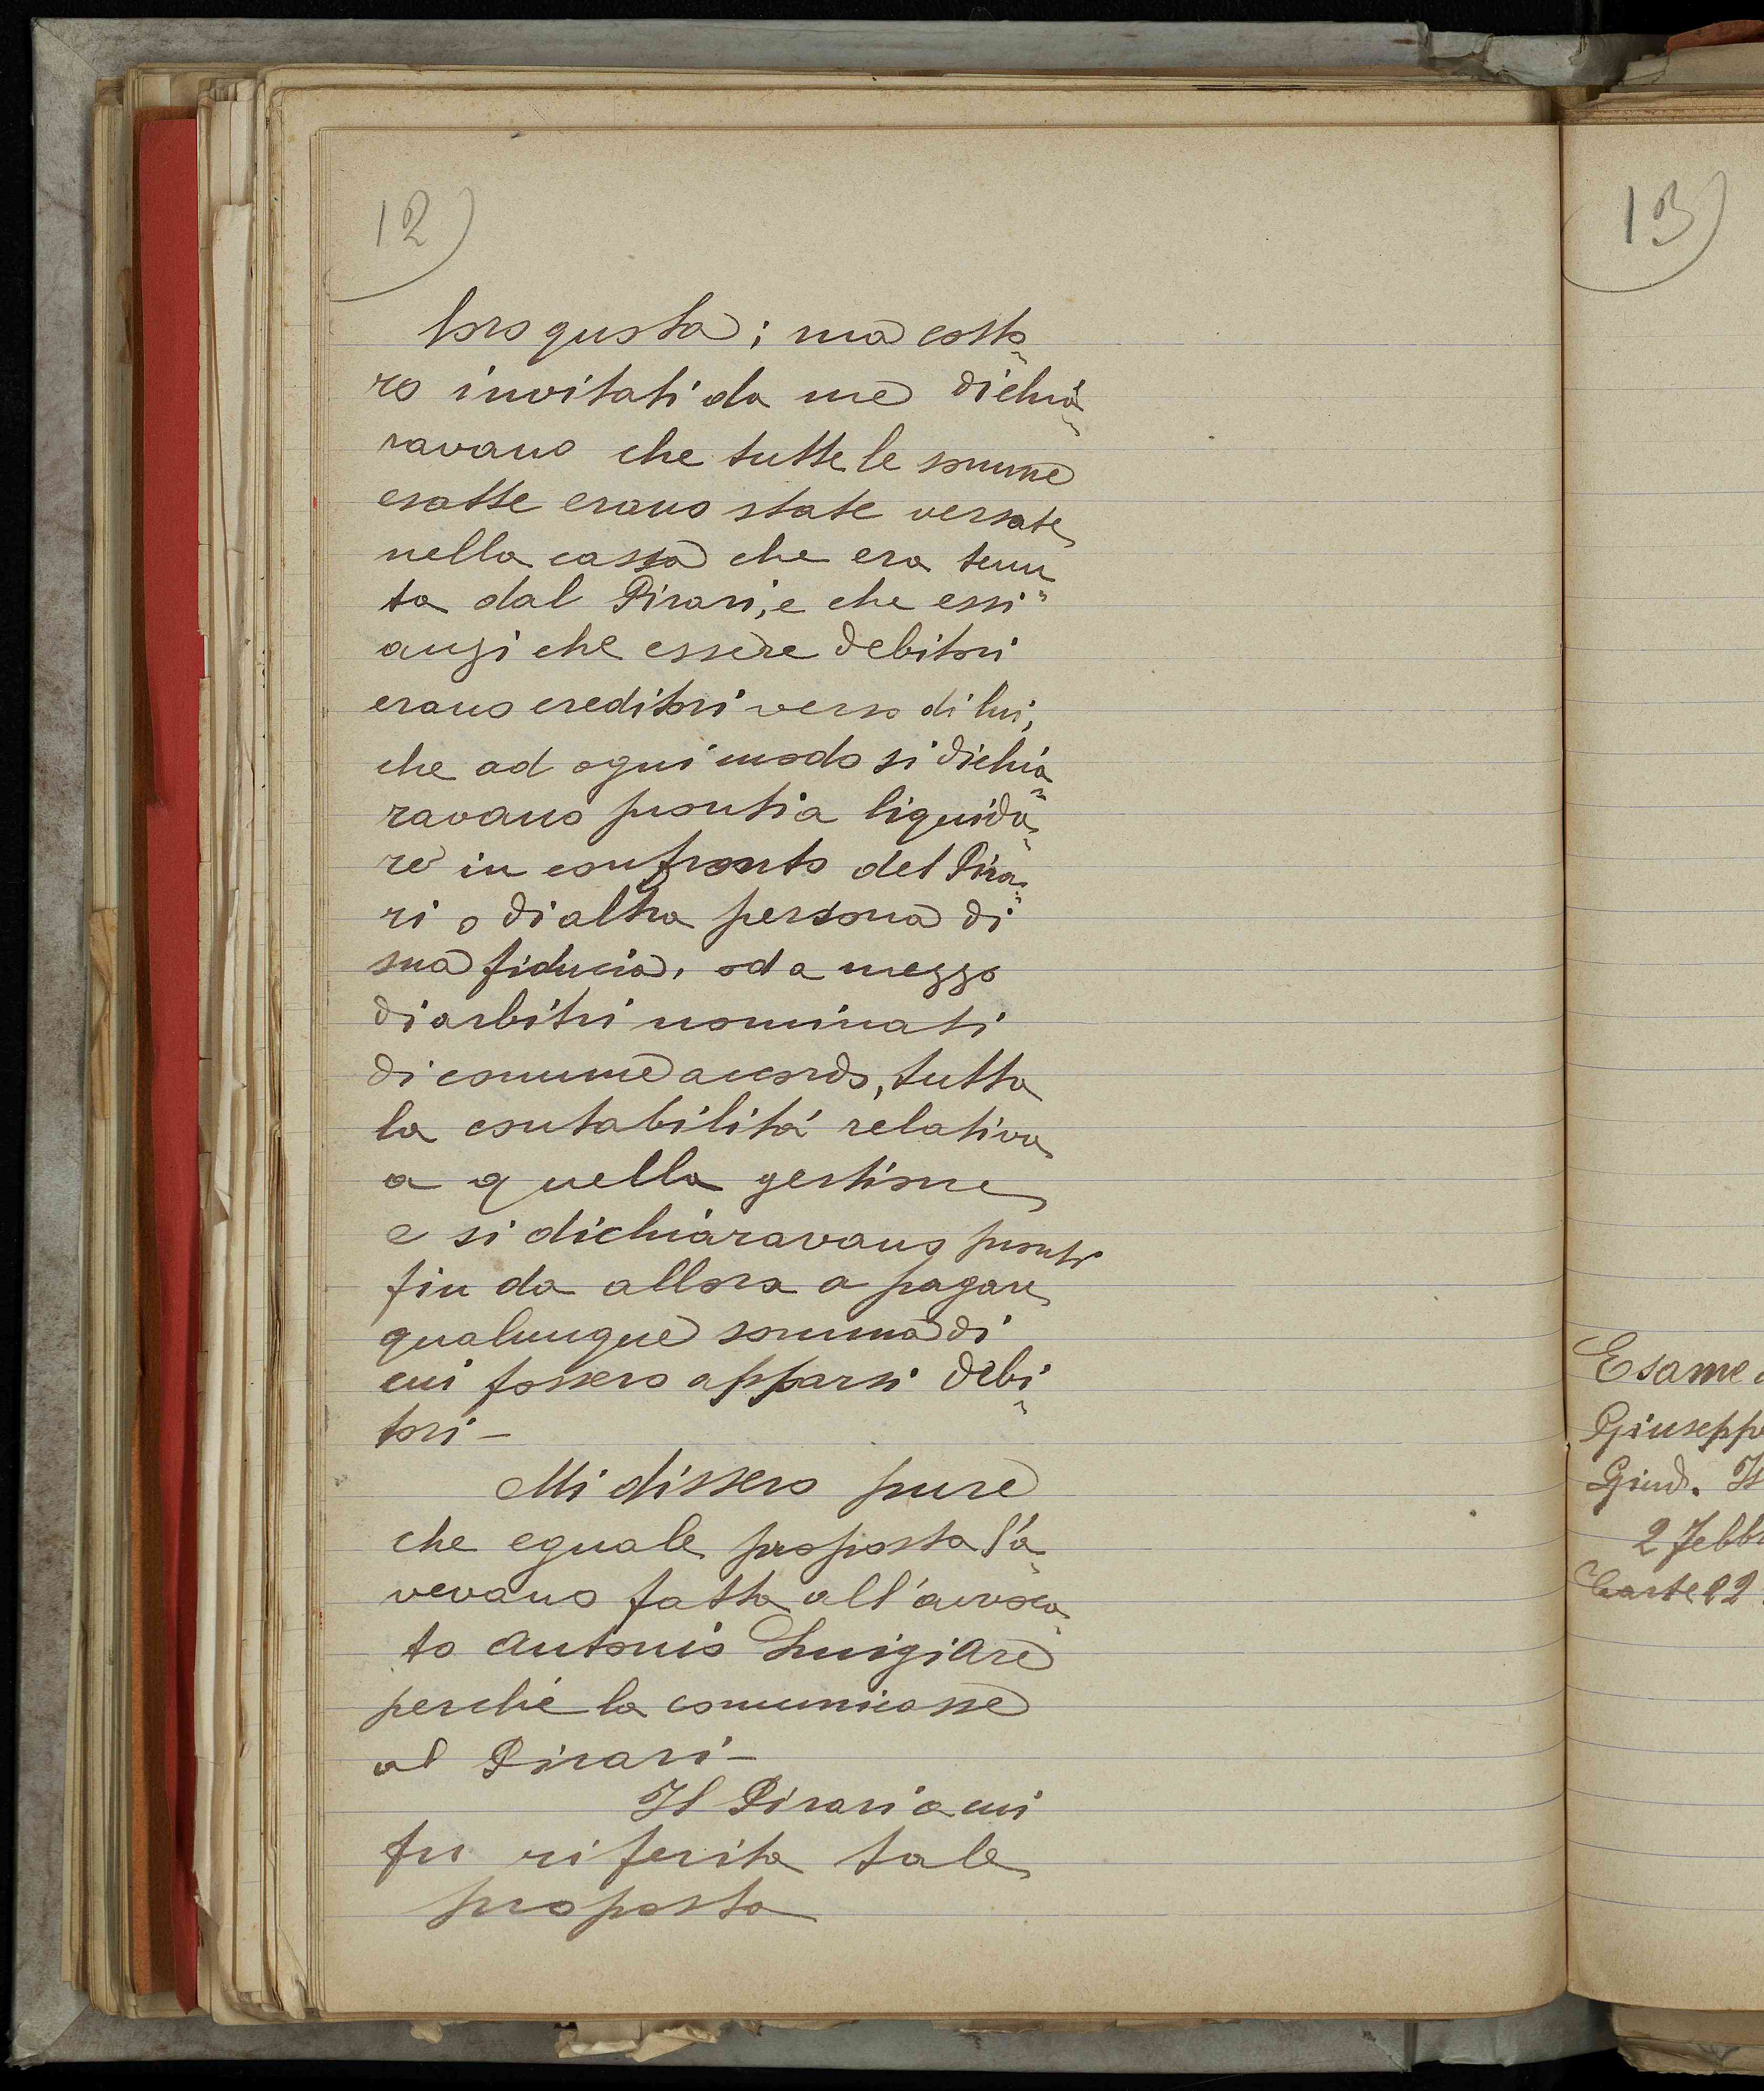 12)
loro gusta; ma costo
ro invitati da me dichia
ravano che tutte le somme
esatte erano state versate
nella cassa che era tenu
ta dal Pirari, e che essi
anzi che essere debitori
erano creditori verso di lui,
che ad ogni modo si dichia
ravano pronti a liquida
re in confronto del Pira
ri o di altra persona di
sua fiducia, od a mezzo
di arbitri nominati
di comune accordo, tutta
la contabilitá relativa
a quella gestione
e si dichiaravano pronti
fin da allora a pagare
qualunque somma di
cui fossero apparsi debi
tori -
Mi dissero pure
che eguale proposta l'a
vevano fatta all'avvoca
to Antonio Luigi Are
perché la comunicasse
al Pirari -
Il Pirari a cui
fu riferita tale
proposta
13)
Esame
Giuseppe
Giud. Is
2 Febbr
Carte 22